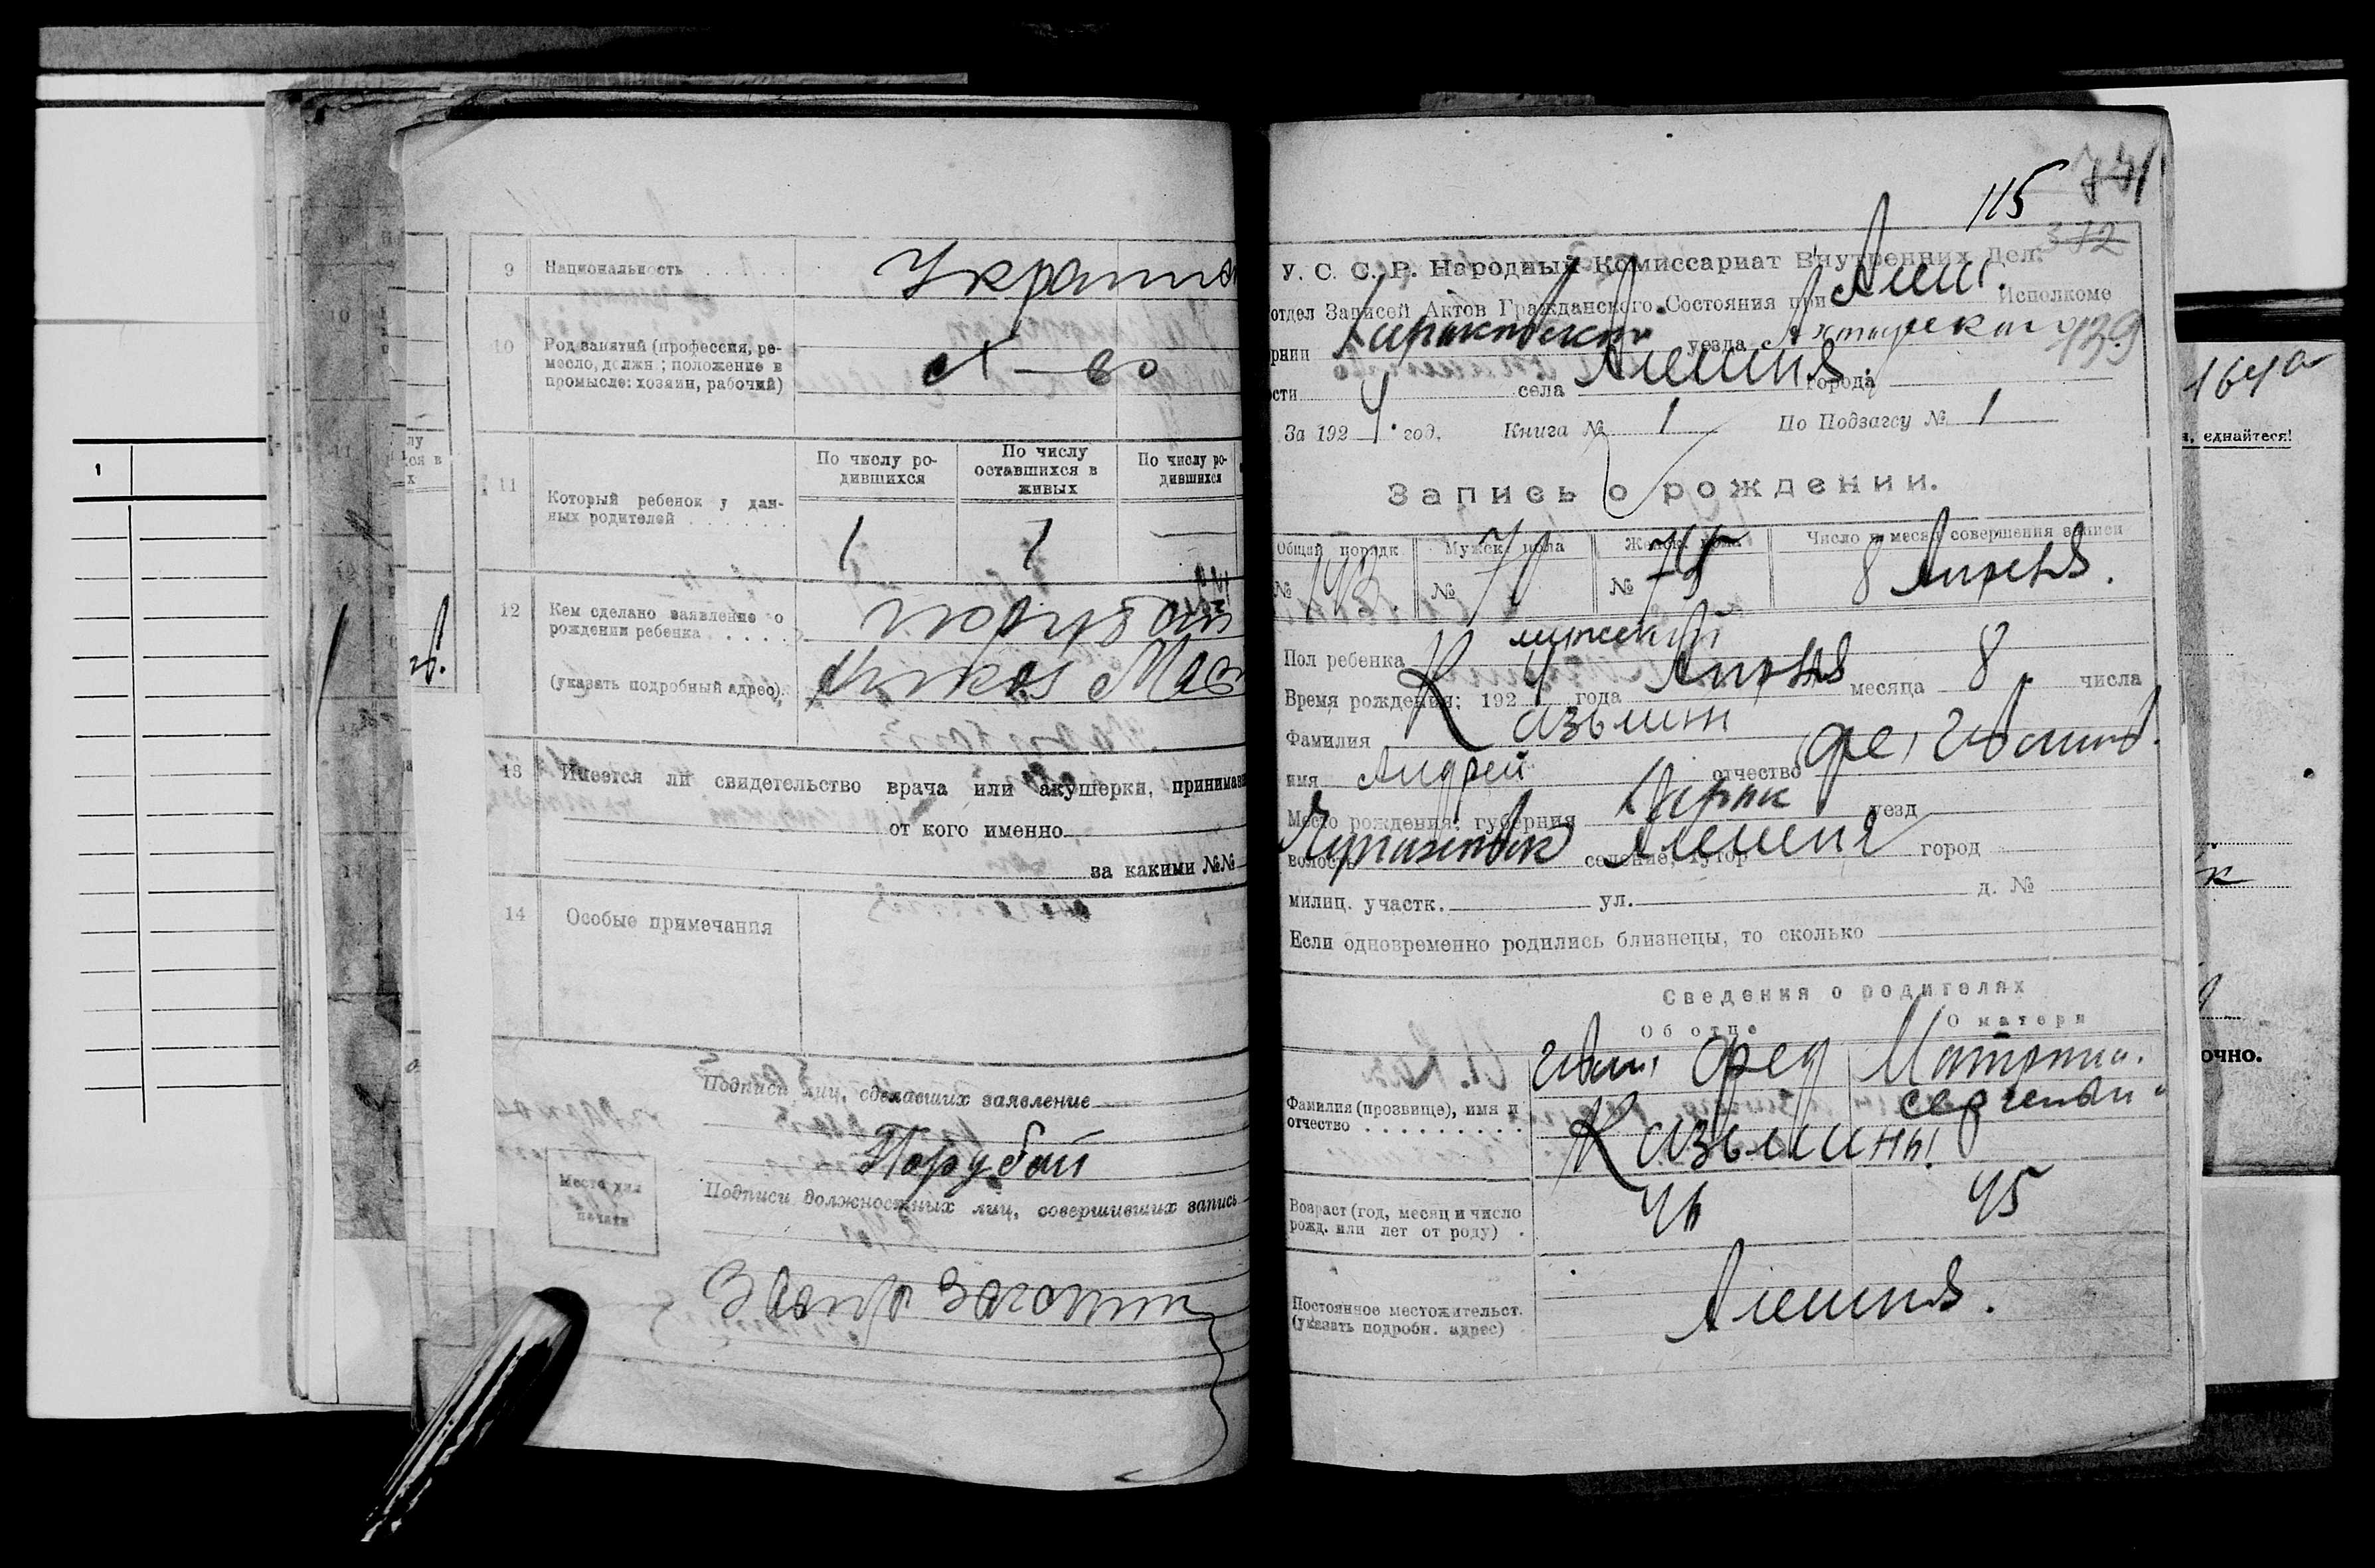 9 Национальность Украинск
10 Род занятий (профессия, ре-
месло, должн; положение в
промысле: хозяин, рабочий)
сх-во
11 Который ребенок у дан-
ных родителей
По числу ро-
дившихся
По числу
оставшихся в
живых
По числу ро-
дившихся
1 1 —
12 Кем сделано заявление о
рождении ребенка
Порубай
(указать подробный адрес)
13 Имеется ли свидетельство врача или акушерки, принимав
от кого именно
за какими №№
14 Особые примечания
Подписи лиц, сделавших заявление
Порубай
Место для
печати
Подписи должностных лиц, совершивших запись
115
741
312
У. С. С. Р. Народный Комиссариат Внутренних Дел.
отдел Записей Актов Гражданского Состояния при Алеш. Исполкоме
рнии Харьковской уезда Ахтырского
139
сти села Алешня города
За 1924. год. Книга № 1 По Подзагсу № 1
Запись о рождении.
Общий порядк. Мужск. пола Женск. пола Число и месяц совершения записи
№ 143. № 70 № 75 8 Апреля.
Пол ребенка мужской
Время рождения: 1924 года Апреля месяца 8 числа
Фамилия Казьмин
имя Андрей отчество
Место рождения: губерния Харьк уезд
волость селение, хутор Алешня город
милиц. участк. ул. д. №
Если одновременно родились близнецы, то сколько
Сведения о родителях
Об отце О матери
Фамилия (прозвище), имя и
отчество
Иван Фед
Матрона
Сергеевн
Казьмины
Возраст (год, месяц и число
рожд. или лет от роду)
46 45
Постоянное местожительст.
(указать подробн. адрес)
Алешня.
164а
еднайтеся!
очно.
1